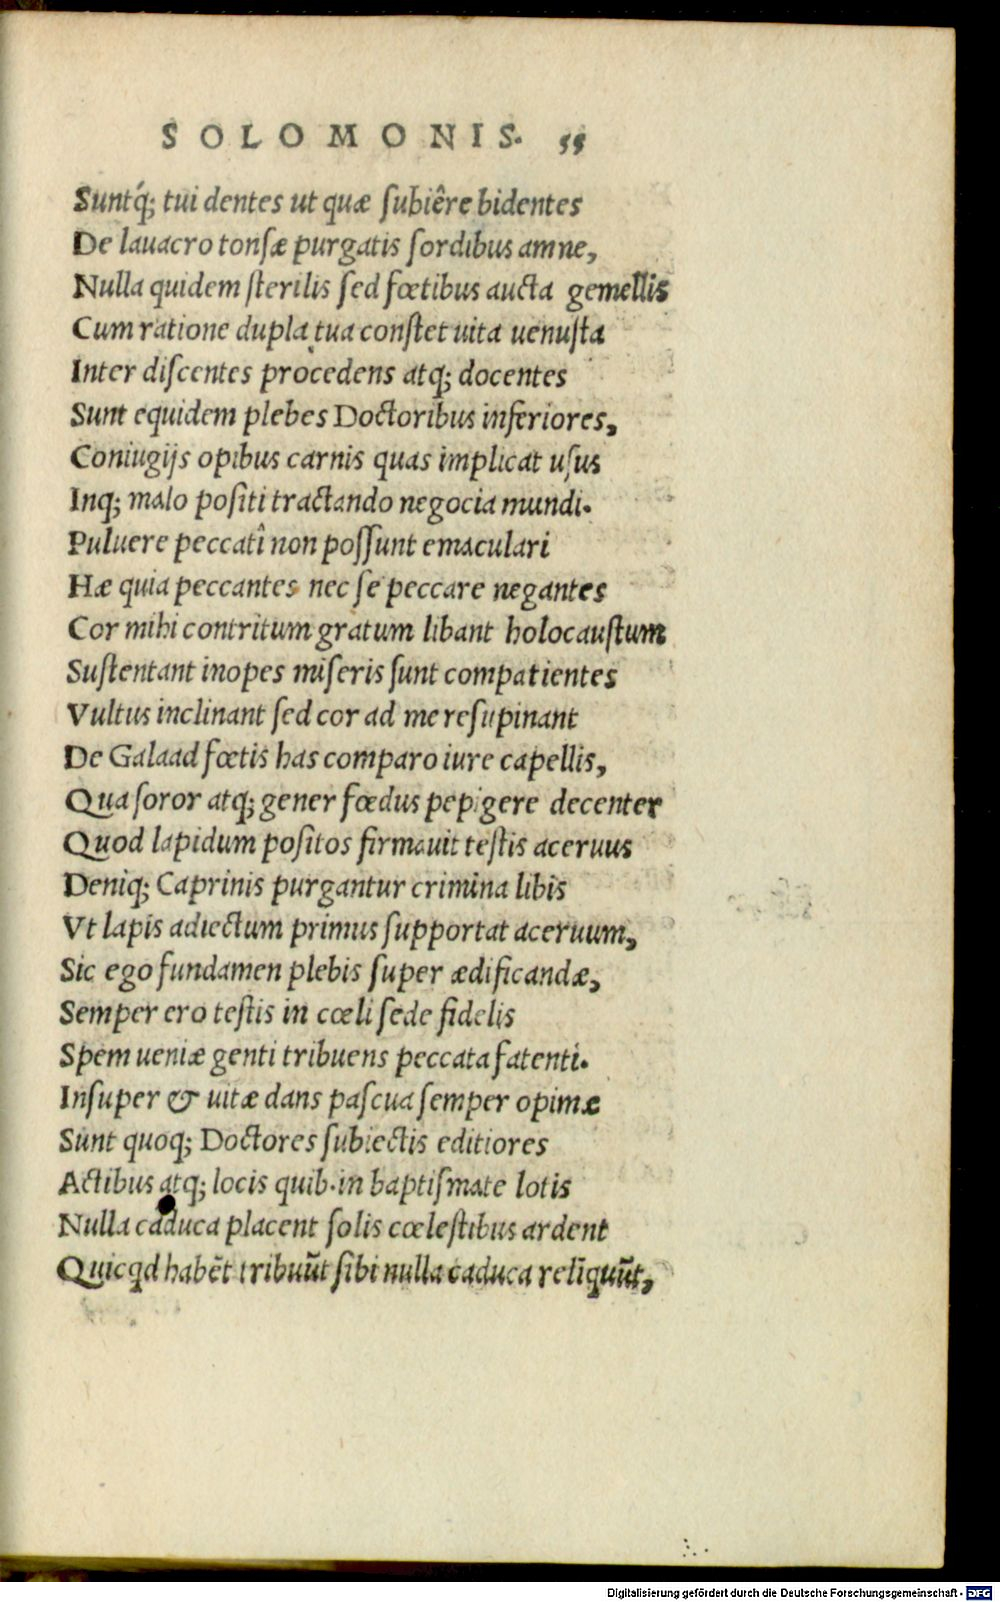 SOLOMONIS. 55
Suntq́; tui dentes ut quæ ſubiêre bidentes
De lauacro tonſæ purgatis ſordibus amne,
Nulla quidem ſterilis ſed fœtibus aucta gemellis
Cum ratione dupla tua conſtet uita uenuſta
Inter diſcentes procedens atq; docentes
Sunt equidem plebes Doctoribus inferiores,
Coniugijs opibus carnis quas implicat uſus
Inq; malo poſiti tractando negocia mundi.
Puluere peccatî non poſſunt emaculari
Hæ quia peccantes nec ſe peccare negantes
Cor mihi contritum gratum libant holocauſtum
Suſtentant inopes miſeris ſunt compatientes
Vultus inclinant ſed cor ad me reſupinant
De Galaad fœtis has comparo iure capellis,
Qua ſoror atq; gener fœdus pepigere decenter
Quod lapidum poſitos firmauit teſtis aceruus
Deniq; Caprinis purgantur crimina libis
Vt lapis adiectum primus ſupportat aceruum,
Sic ego fundamen plebis ſuper ædificandæ,
Semper ero teſtis in cœli ſede fidelis
Spem ueniæ genti tribuens peccata fatenti.
Inſuper & uitæ dans paſcua ſemper opimæ
Sunt quoq; Doctores ſubiectis editiores
Actibus atq; locis quib. in baptiſmate lotis
Nulla caduca placent ſolis cœleſtibus ardent
Quicqd habēt tribuūt ſibi nulla caduca relīquūt,
Digitalisierung gefördert durch die Deutsche Forschungsgemeinschaft - DFG